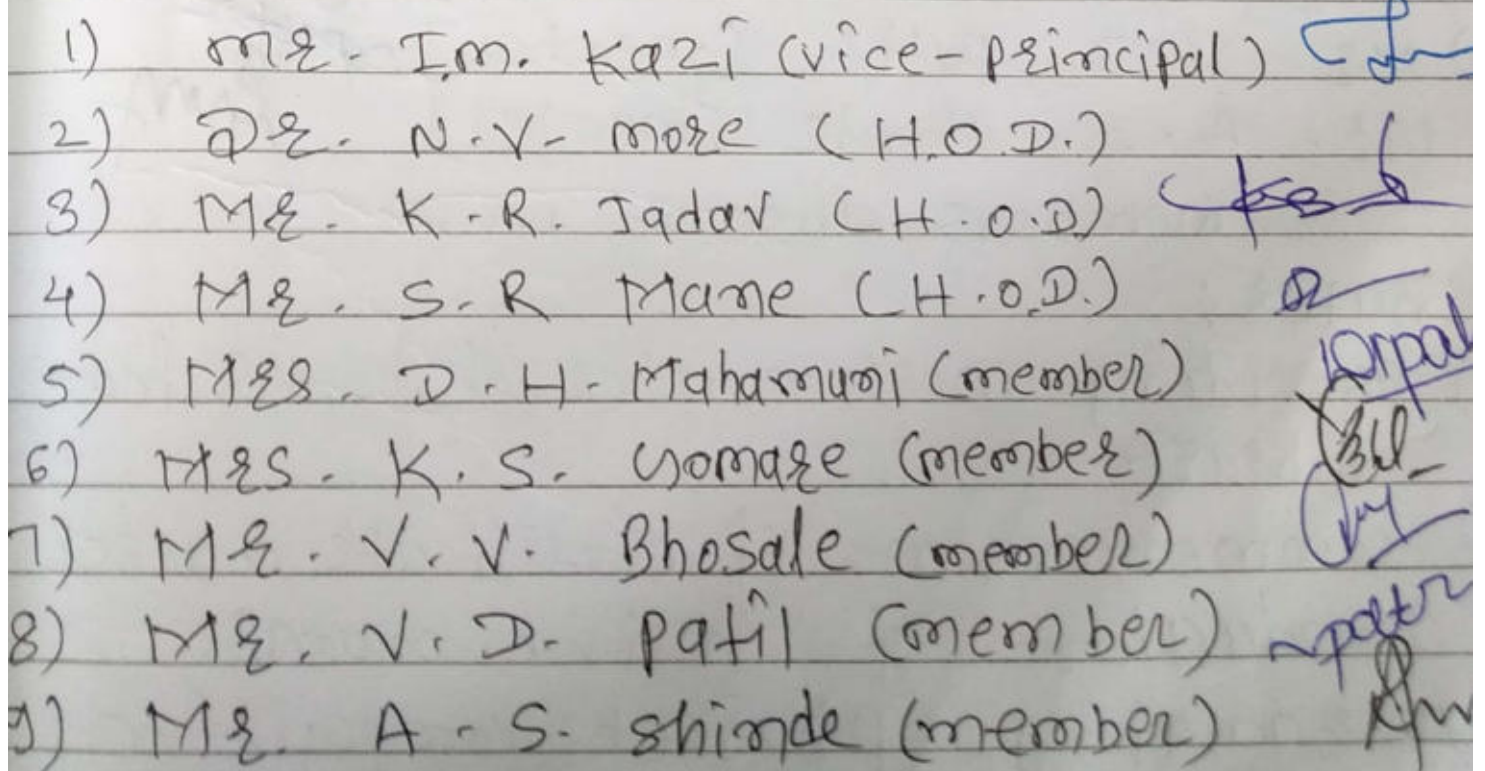 1) Mr. I.M. Kazi (vice-principal)
2) Dr. N.V. more (H.O.D.)
3) Mr. K.R. Jadav (H.O.D)
4) Mr. S.R Mane (H.O.D.)
5) Mrs. D.H. Mahamuni (member)
6) Mrs. K.S. (member)
7) Mr. V.V. Bhosale (member)
8) Mr. V.D. patil (member)
9) Mr. A.S. shinde (member)